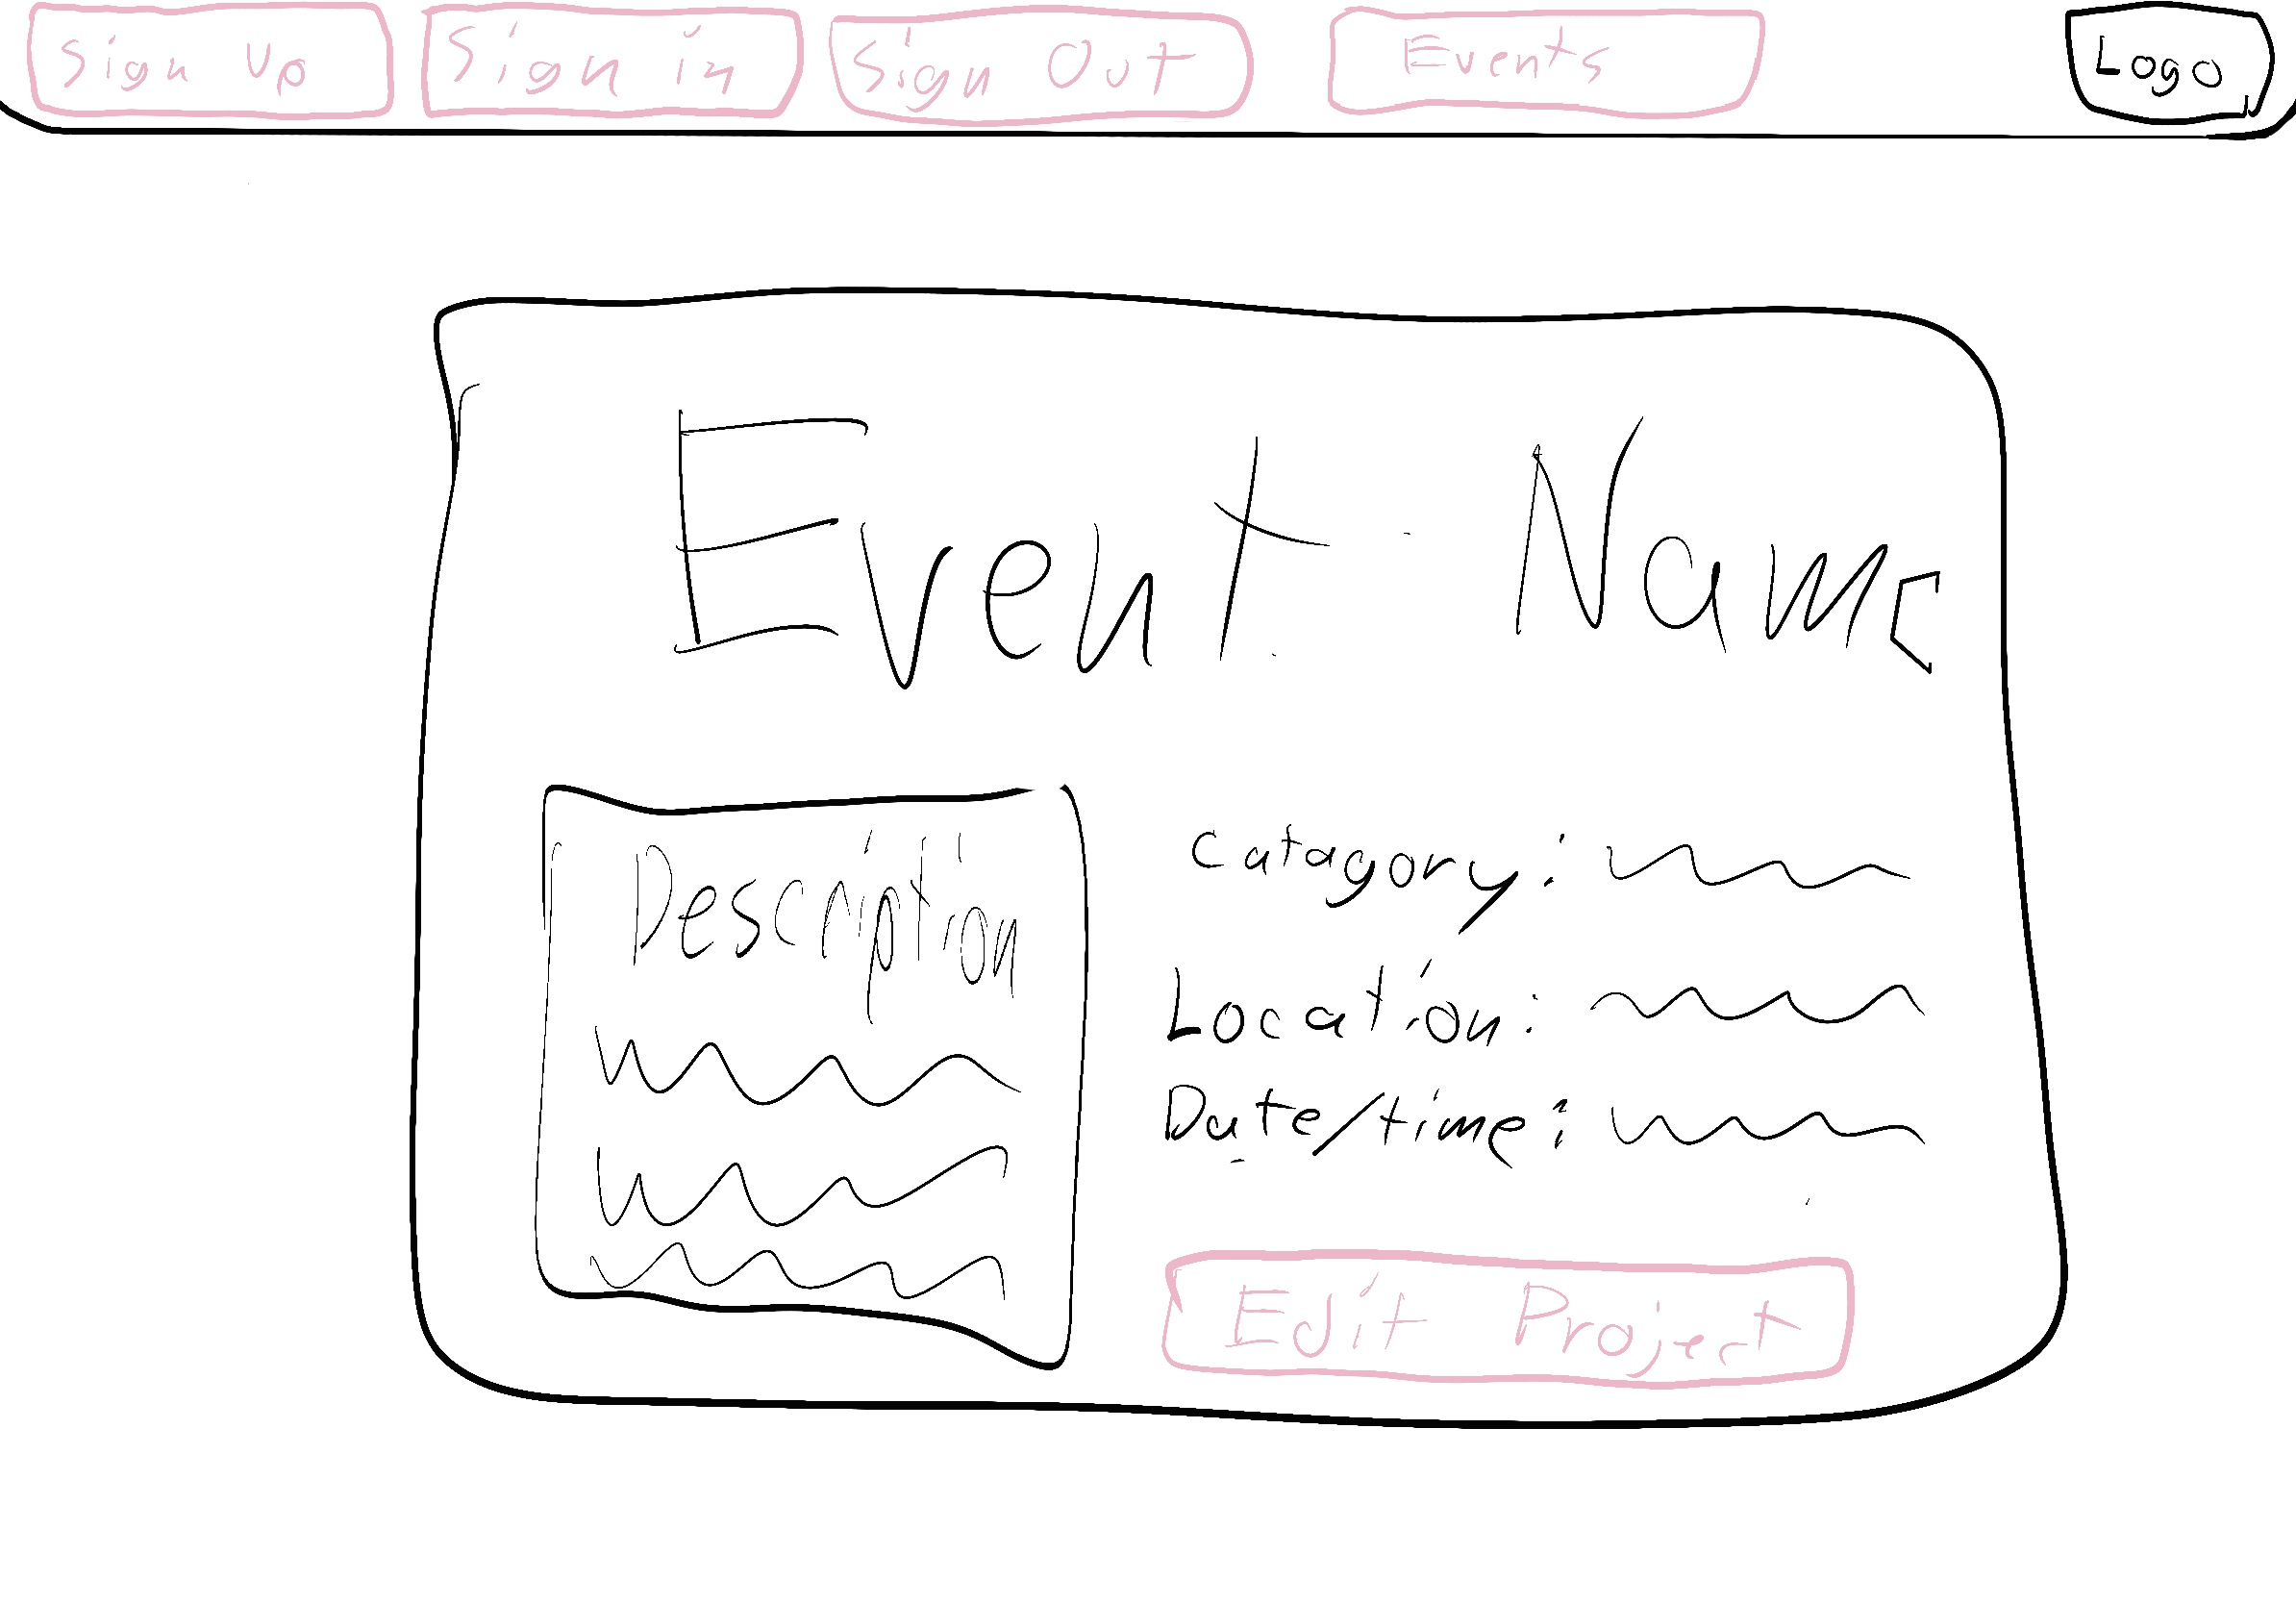 Sign Up
Sign in
Sign Out
Events
Logo
Event Name
Description
Catagory:
Location:
Date/time:
Edit Project